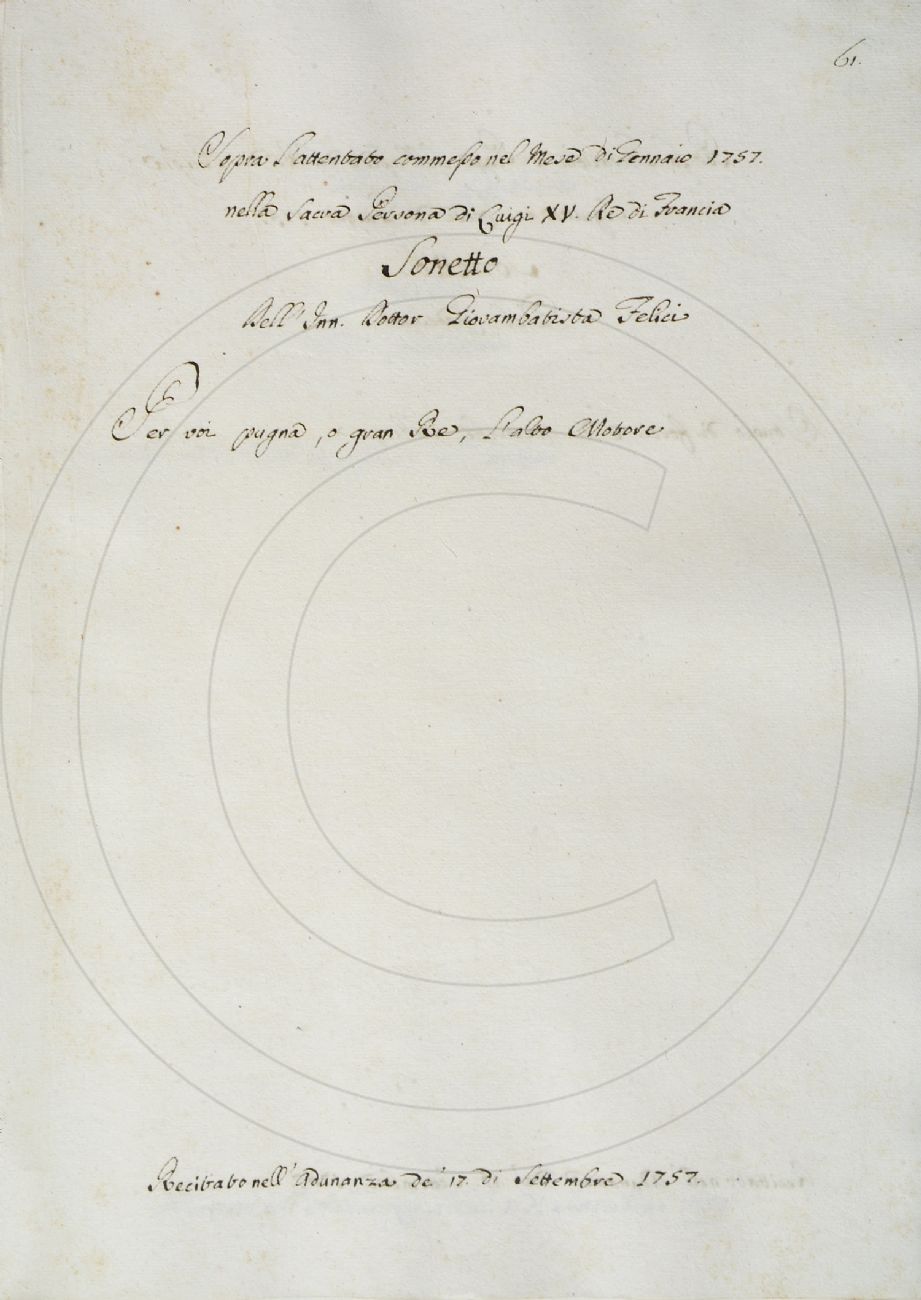 61.
Sopra L'attentato commesso nel Mese di Gennaio 1757.
nella Sacra Persona di Luigi XV. Re di Francia
Sonetto
Dell' Inn. Dottor Giovambatista Felici
Per voi pugna, o gran Re, L'alto Motore
Recitato nell' Adunanza de' 17. di Settembre 1757.